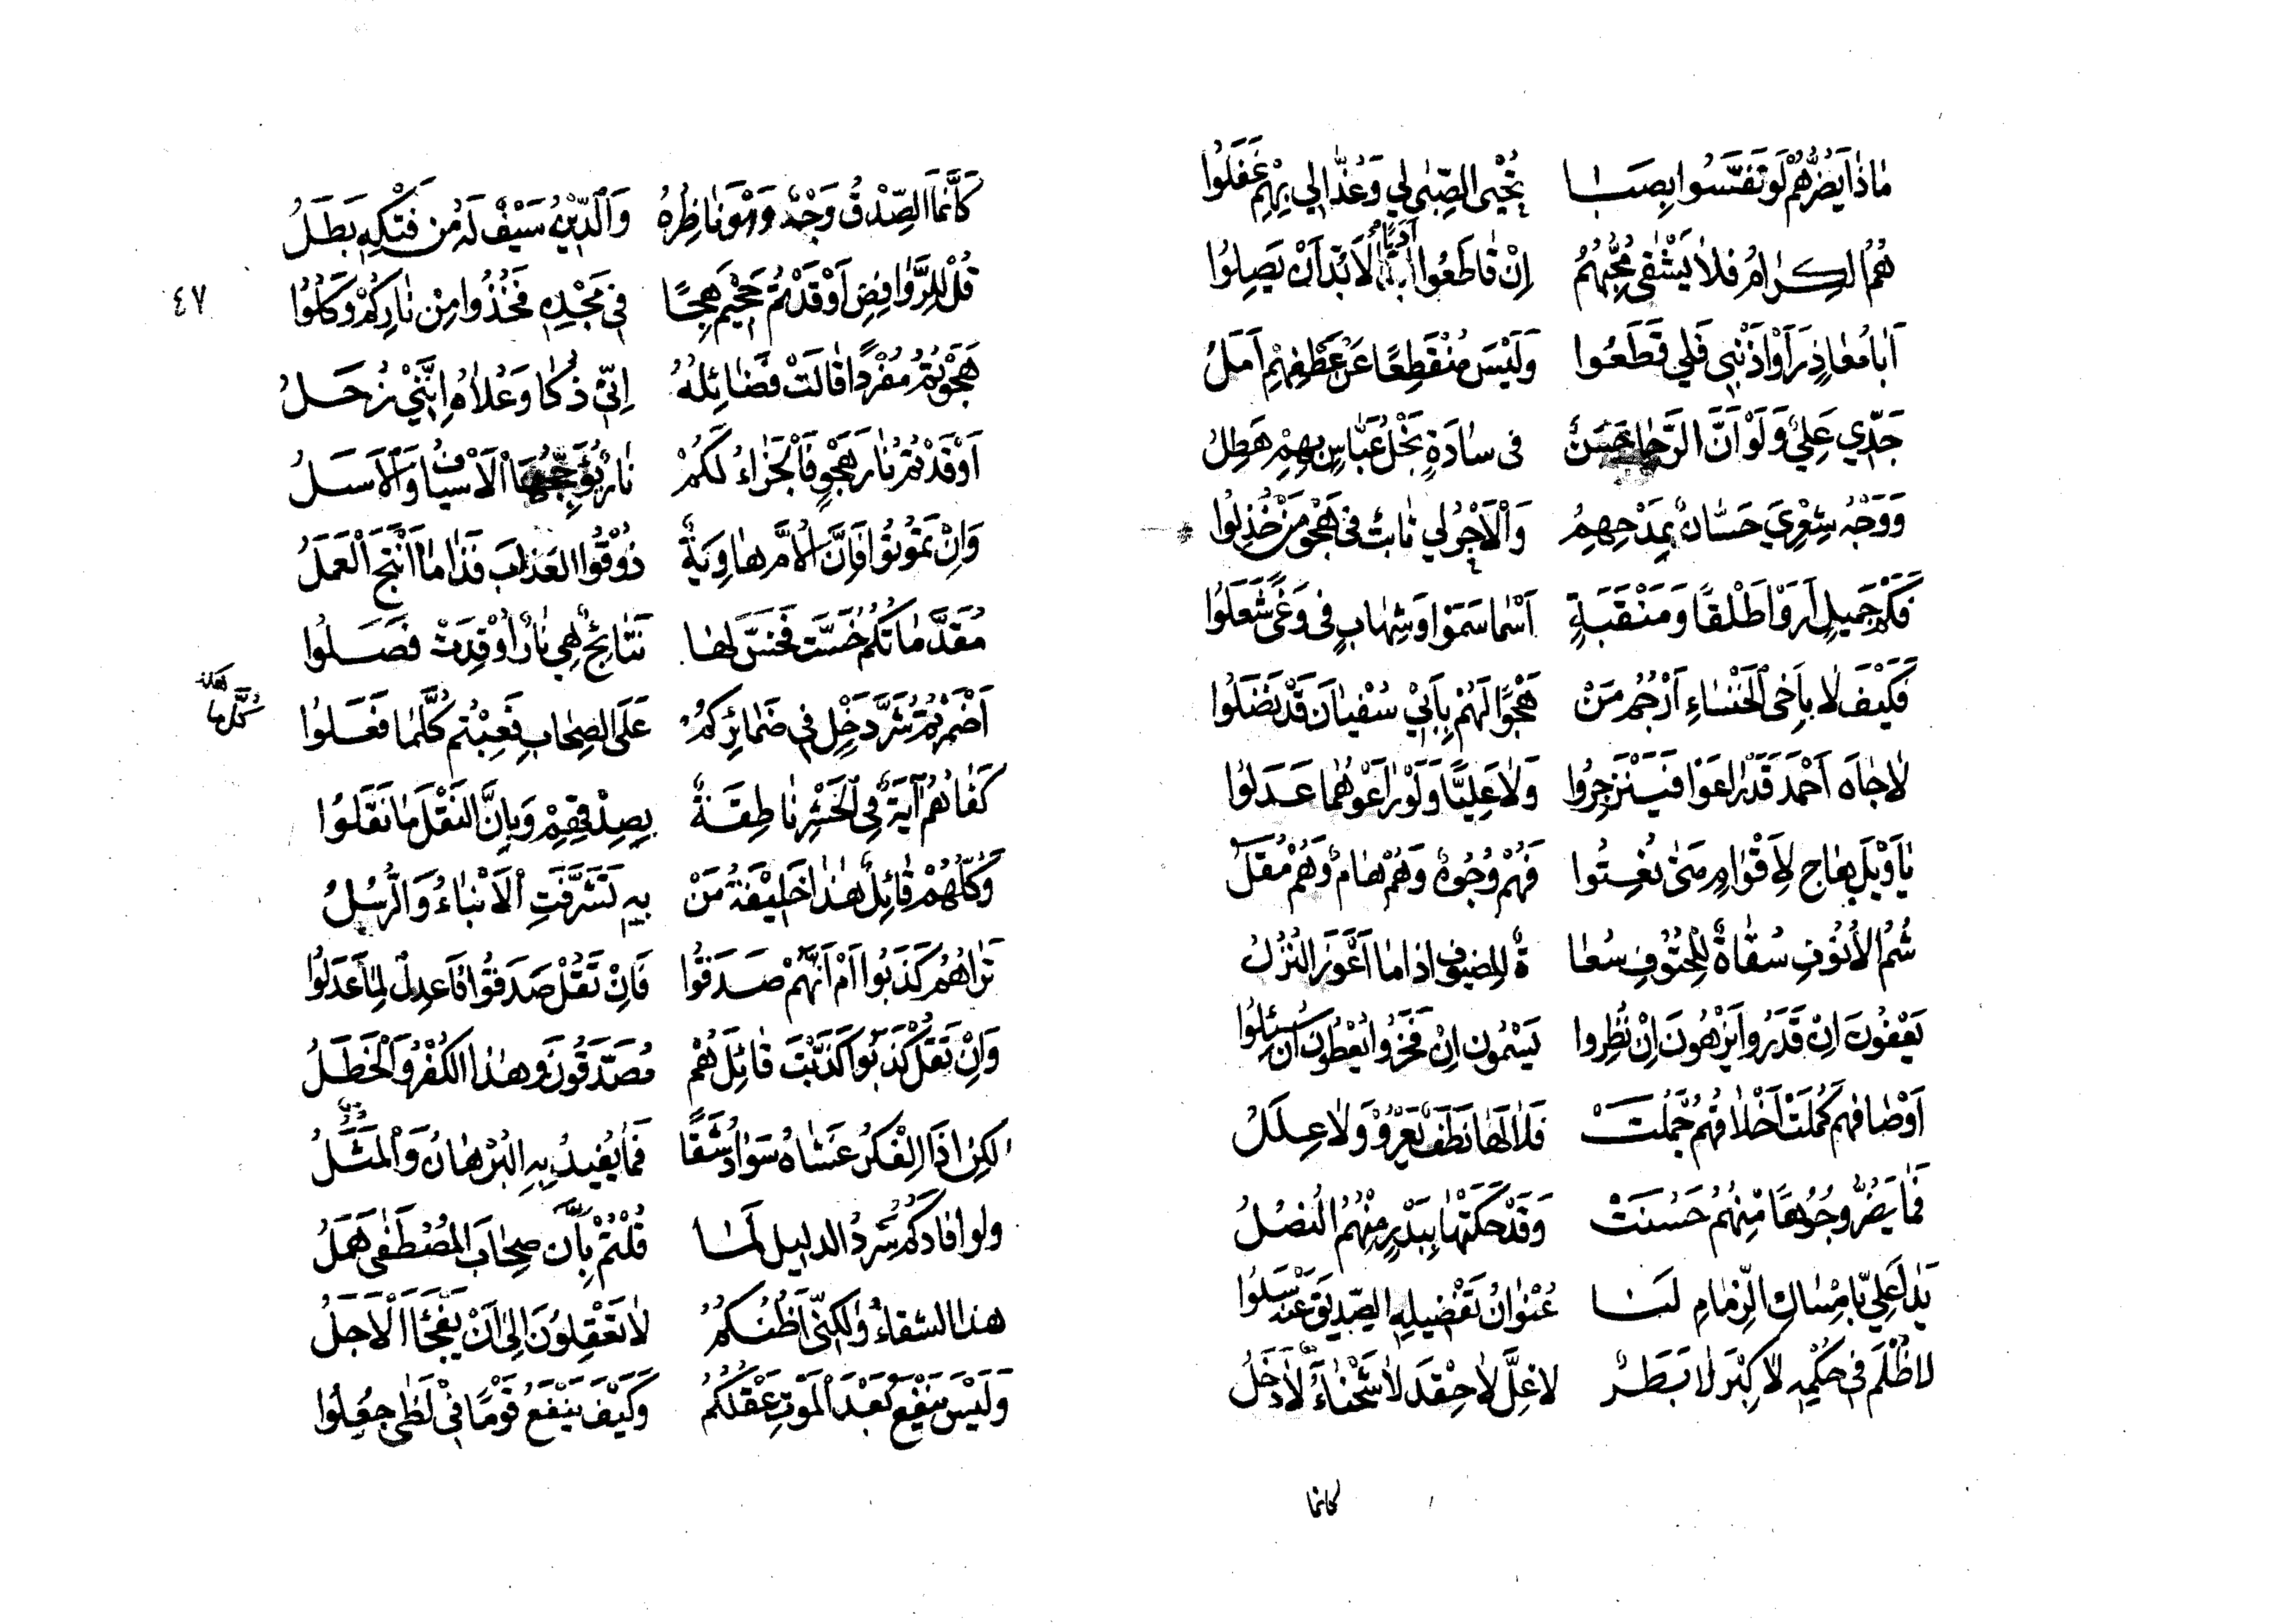 مَاذَا يَضُرُّهُمُ لَوْ تَفَسَّسُوا بِصَبَا نُحْيِي الصِّبَى لِي وَعُذَّالِي بِهِمْ غَفَلُوا
هُمُ الكِرَامُ فَلَا يَشْقَى مُحِبُّهُمُ إِنْ قَاطَعُوا أَدَبًا لَابُدَّ أَنْ يَصِلُوا
أَبَا مُعَاذٍ رَأَوْا ذَنْبِي فَلِي قَطَعُوا وَلَيْسَ مُنْقَطِعًا عَنْ عَطْفِهِمْ أَمَلُ
جَدِّي عَلِيٌّ وَلَوْ أَنَّ الرَّجَا حَسَنٌ فِي سَادَةٍ نَجْلُ عَبَّاسٍ بِهِمْ هَطِلُ
وَوَجْهُ شِعْرِيَ حَسَّانٌ بِمَدْحِهِمُ وَالْأَجْرُ لِي ثَابِتٌ فِي هَجْوِ مَنْ خُذِلُوا
فَكَمْ جَمِيلٍ أَرَوْا طَلْقًا وَمَنْقَبَةٍ أَسْمَا سَمَوْا وَشِهَابٍ فِي وَغًى شَعَلُوا
فَكَيْفَ لَا بِأَخِي الْخَنْسَاءِ أَرْجُمُ مَنْ هَجْوًا لَهُمْ بِأَبِي سُفْيَانَ قَدْ نَضَلُوا
لَا جَاهَ أَحْمَدَ قَدْ رَاعَوْا فَيَنْزَجِرُوا وَلَا عَلِيًّا وَلَوْ رَاعَوْهُمَا عَدَلُوا
يَا وَيْلَ هَاجٍ لِأَقْوَامٍ مَتَى نُعِتُوا فَهُمْ وُجُوهٌ وَهُمْ هَامٌ وَهُمْ مُقَلُ
شُمُّ الأُنُوفِ سُقَاةٌ لِلْحُتُوفِ سُعَا ةٌ لِلضيوف اذا مَا أَعْوَزَ النُّزُلُ
يَعْفُونَ انْ قَدَرُوا يَزْهُونَ إِنْ نُظِرُوا يَسْمُونَ إِنْ فَخَرُوا يُعْطُونَ انْ سُئِلُوا
أَوْصَافهم كَمُلَتْ أَخْلَاقُهُمْ جَمُلَتْ فَلَا لَهَا نَطَفٌ يَعْرُو وَلَا عِلَلُ
فَمَا يَضُرُّ وُجُوهًا مِنْهُمُ حَسُنَتْ وَقَدْ حَكَتْهَا بِبَدْرٍ مِنْهُمُ النُّصُلُ
يَدٌ لَعَلِيٍّ بِإِمْسَاكِ الزِّمَامِ لَنَا عُنْوَانُ تَفْضِيلِهِ الصِّدِّيقَ عَنْهُ سَلُوا
لا ظُلْمَ فِي حُكْمِهِ لَا كِبْرَ لَا بَطَرٌ لا غِلَّ لَا حِقْدَ لَا شَحْنَاءُ لَا دَخَلُ
كانما
كَأَنَّمَا الصِّدْقُ وَجْهٌ وَهْوَ نَاظِرُهُ وَالدِّيْنُ سَيْفٌ لَهُ مِنْ فَتْكِهِ بَطَلُ
٤٧
قُلْ لِلرَّوَافِضِ أَوْقَدْتُمْ جَحِيْمَ هِجًا فِي مَجْدِهِ فَخُذُوا مِنْ نَارِكُمْ وَكُلُوا
هَجَوْتُمُ مُفْرَدًا قَالَتْ فَضَائِلُهُ إِنِّي ذُكَا وَعُلَاهُ إِنَّنِي زُحَلُ
أَوْقَدْتُمُ نَارَ هَجْوٍ فَالْجَزَاءُ لَكُمْ نَارٌ يُؤَجِّجُهَا الْأَسْيَافُ وَالْأَسَلُ
وَإِنْ تَمُوتُوا فَإِنَّ الْأُمَّ هَاوِيَةٌ ذُوْقُوا العَذَابَ فَذَا مَا أَنْتَجَ الْعَمَلُ
مُقَدَّمَاتُكُمُ خَسَّتْ فَخَسَّ لَهَا نَتَائِجٌ هِيَ نَارٌ أُوْقِدَتْ فَصَلُوا
أَضْمَرْتُمُ شَرَّ دَخْلٍ فِي ضَمَائِرِكُمْ عَلَى الصِّحَابِ فَعِبْتُم كُلَّمَا فَعَلُوا
كُلَّ مَا
كَفَاهُمُ آيَةٌ فِي الْحَشْرِ نَاطِقَةٌ بِصِدْقِهِمْ وَبِأَنَّ النَقْلَ مَا نَقَلُوا
وَكُلُّهُمْ قَائِلٌ هَذَا خَلِيْفَةُ مَنْ بِهِ تَشَرَّفَتِ الْأَنْبَاءُ وَالرُّسُلُ
تَرَاهُمُ كَذَبُوا أَمْ أَنَّهُمْ صَدَقُوا فَإِنْ تَقُلْ صَدَقُوا فَاعدِلْ لِمَا عَدَلُوا
وَإِنْ تَقُلْ كَذَبُوا كَذَّبْتَ قَائِلَهُمْ مُصَدَّقُونَ وَهَذَا الكُفْرُ وَالْخَطَلُ
لكِنْ إِذَا الْفِكْرُ غَشَاهُ سَوَادُ شَقًا فَمَا يُفِيدُ بِهِ البُرْهَانُ وَالْمَثَلُ
ولو افادكم شَرْدُ الدليل لَمَا قُلْتُمْ بِأَنَّ صِحَابَ المُصْطَفَى هَمَلُ
هذا الشقاءُ وَلَكِنِّي أَظُنُّكُمُ لَا تَعْقِلُونَ إِلَى أَنْ يَفْجَأَ الْأَجَلُ
وَلَيْسَ يَنْفَعُ بَعْدَ الْمَوْتِ عَقْلُكُمُ وَكَيْفَ يَنْفَعُ قَوْمًا فِي لَظَى جُعِلُوا